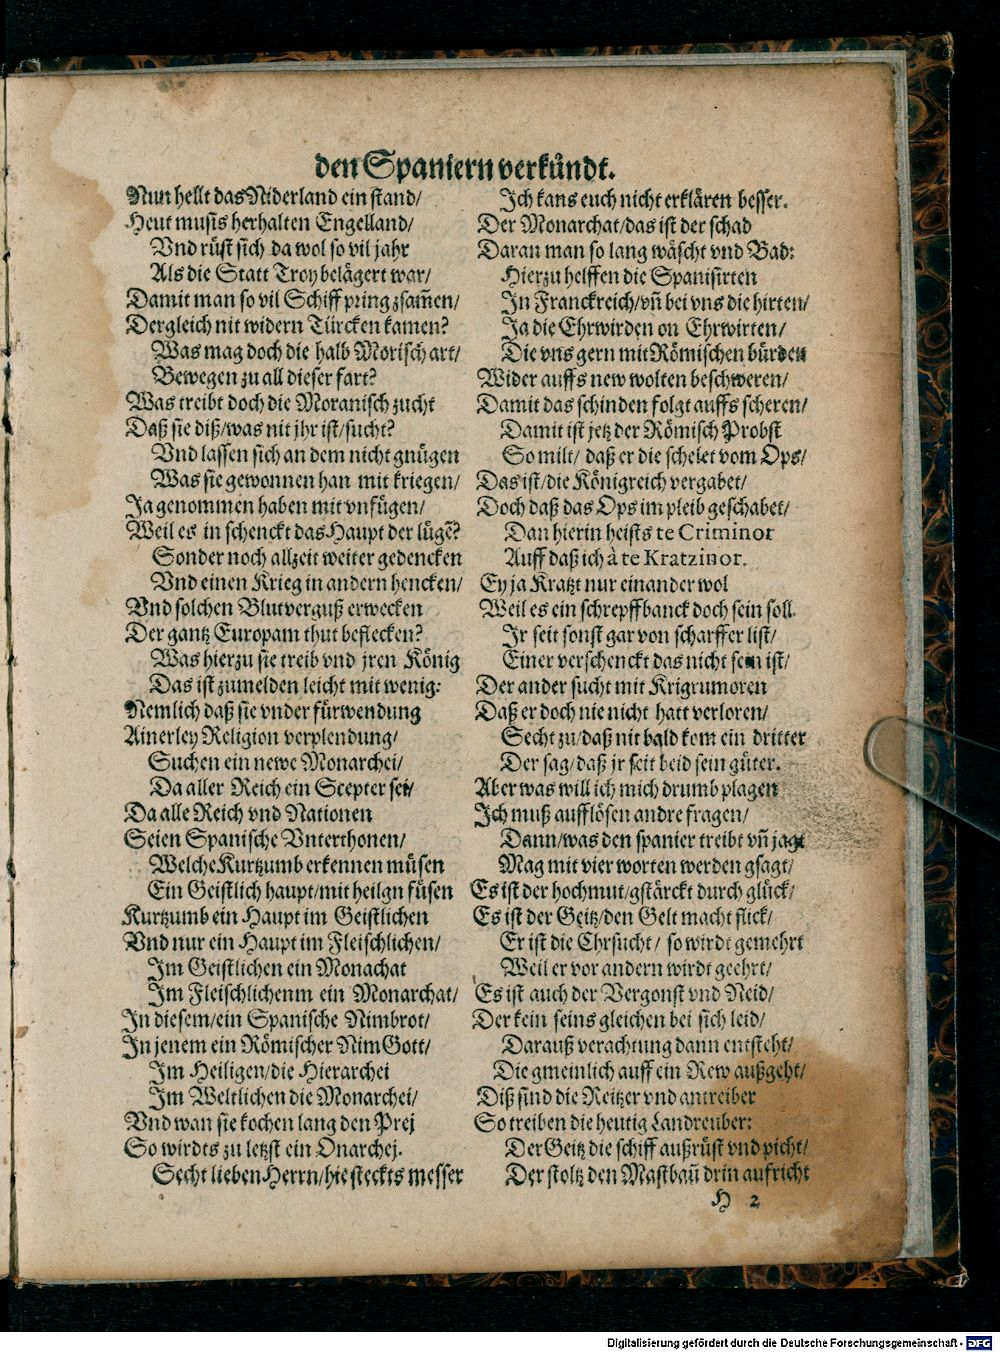 den Spaniern verkündt.
Nun hellt das Niderland ein stand/
Heut musis herhalten Engelland/
Vnd rüst sich da wol so vil jahr
Als die Statt Troy belägert war/
Damit man so vil Schiff pring zsam̃en/
Dergleich nit widern Türcken kamen?
Was mag doch die halb Morisch art/
Bewegen zu all dieser fart?
Was treibt doch die Moranisch zucht
Daß sie diß/was nit jhr ist/sucht?
Vnd lassen sich an dem nicht gnügen
Was sie gewonnen han mit kriegen/
Ja genommen haben mit vnfügen/
Weil es in schenckt das Haupt der lügẽ?
Sonder noch allzeit weiter gedencken
Vnd einen Krieg in andern hencken/
Vnd solchen Blutverguß erwecken
Der gantz Europam thut beflecken?
Was hierzu sie treib vnd jren König
Das ist zumelden leicht mit wenig:
Nemlich daß sie vnder fürwendung
Ainerley Religion verplendung/
Suchen ein newe Monarchei/
Da aller Reich ein Scepter sei/
Da alle Reich vnd Nationen
Seien Spanische Vnterthonen/
Welche Kurtzumb erkennen müsen
Ein Geistlich haupt/mit heilgn füsen
Kurtzumb ein Haupt im Geistlichen
Vnd nur ein Haupt im Fleischlichen/
Im Geistlichen ein Monachat
Im Fleischlichenm ein Monarchat/
In diesem/ein Spanische Nimbrot/
In jenem ein Römischer NimGott/
Im Heiligen/die Hierarchei
Im Weltlichen die Monarchei/
Vnd wan sie kochen lang den Prej
So wirdts zu letzst ein Onarchej.
Secht lieben Herrn/hie steckts messer
Ich kans euch nicht erklären besser.
Der Monarchat/das ist der schad
Daran man so lang wäscht vnd Bad:
Hierzu helffen die Spanisirten
In Franckreich/vñ bei vns die hirten/
Ja die Ehrwirden on Ehrwirten/
Die vns gern mit Römischen bürden
Wider auffs new wolten beschweren/
Damit das schinden folgt auffs scheren/
Damit ist jetz der Römisch Probst
So milt/ daß er die schelet vom Ops/
Das ist/die Königreich vergabet/
Doch daß das Ops im pleib geschabet/
Dan hierin heists te Criminor
Auff daß ich à te Kratzinor.
Ey ja Kratzt nur einander wol
Weil es ein schrepffbanck doch sein soll.
Jr seit sonst gar von scharffer list/
Einer verschenckt das nicht sein ist/
Der ander sucht mit Krigrumoren
Daß er doch nie nicht hatt verloren/
Secht zu/daß nit bald kom ein dritter
Der sag/daß jr seit beid sein güter.
Aber was will ich mich drumb plagen
Ich muß aufflösen andre fragen/
Dann/was den spanier treibt vñ jagt
Mag mit vier worten werden gsagt/
Es ist der hochmut/gstärckt durch glück/
Es ist der Geitz/den Gelt macht flick/
Er ist die Ehrsucht/ so wirdt gemehrt
Weil er vor andern wirdt geehrt/
Es ist auch der Vergonst vnd Neid/
Der kein seins gleichen bei sich leid/
Darauß verachtung dann entsteht/
Die gmeinlich auff ein Rew außgeht/
Diß sind die Reitzer vnd antreiber
So treiben die heutig Landreuber:
Der Geitz die schiff außrüst vnd picht/
Der stoltz den Mastbaũ drin aufricht
H 2
Digitalisierung gefördert durch die Deutsche Forschungsgemeinschaft - DFG